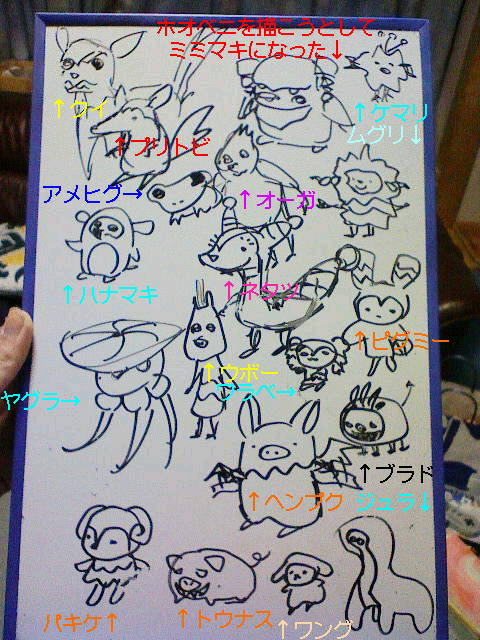 ホオベニを描こうとして
ミミマキになった↓
↑クイ
↑ケマリ
ムグリ↓
↑プリトビ
アメヒグ→
↑オーガ
↑ハナマキ
↑ネタツ
↑ピグミー
↑ウボー
ブラベ→
ヤグラ→
↑ブラド
↑ヘンプク
ジュラ↓
パキケ↑
↑トウナス
↑ワング